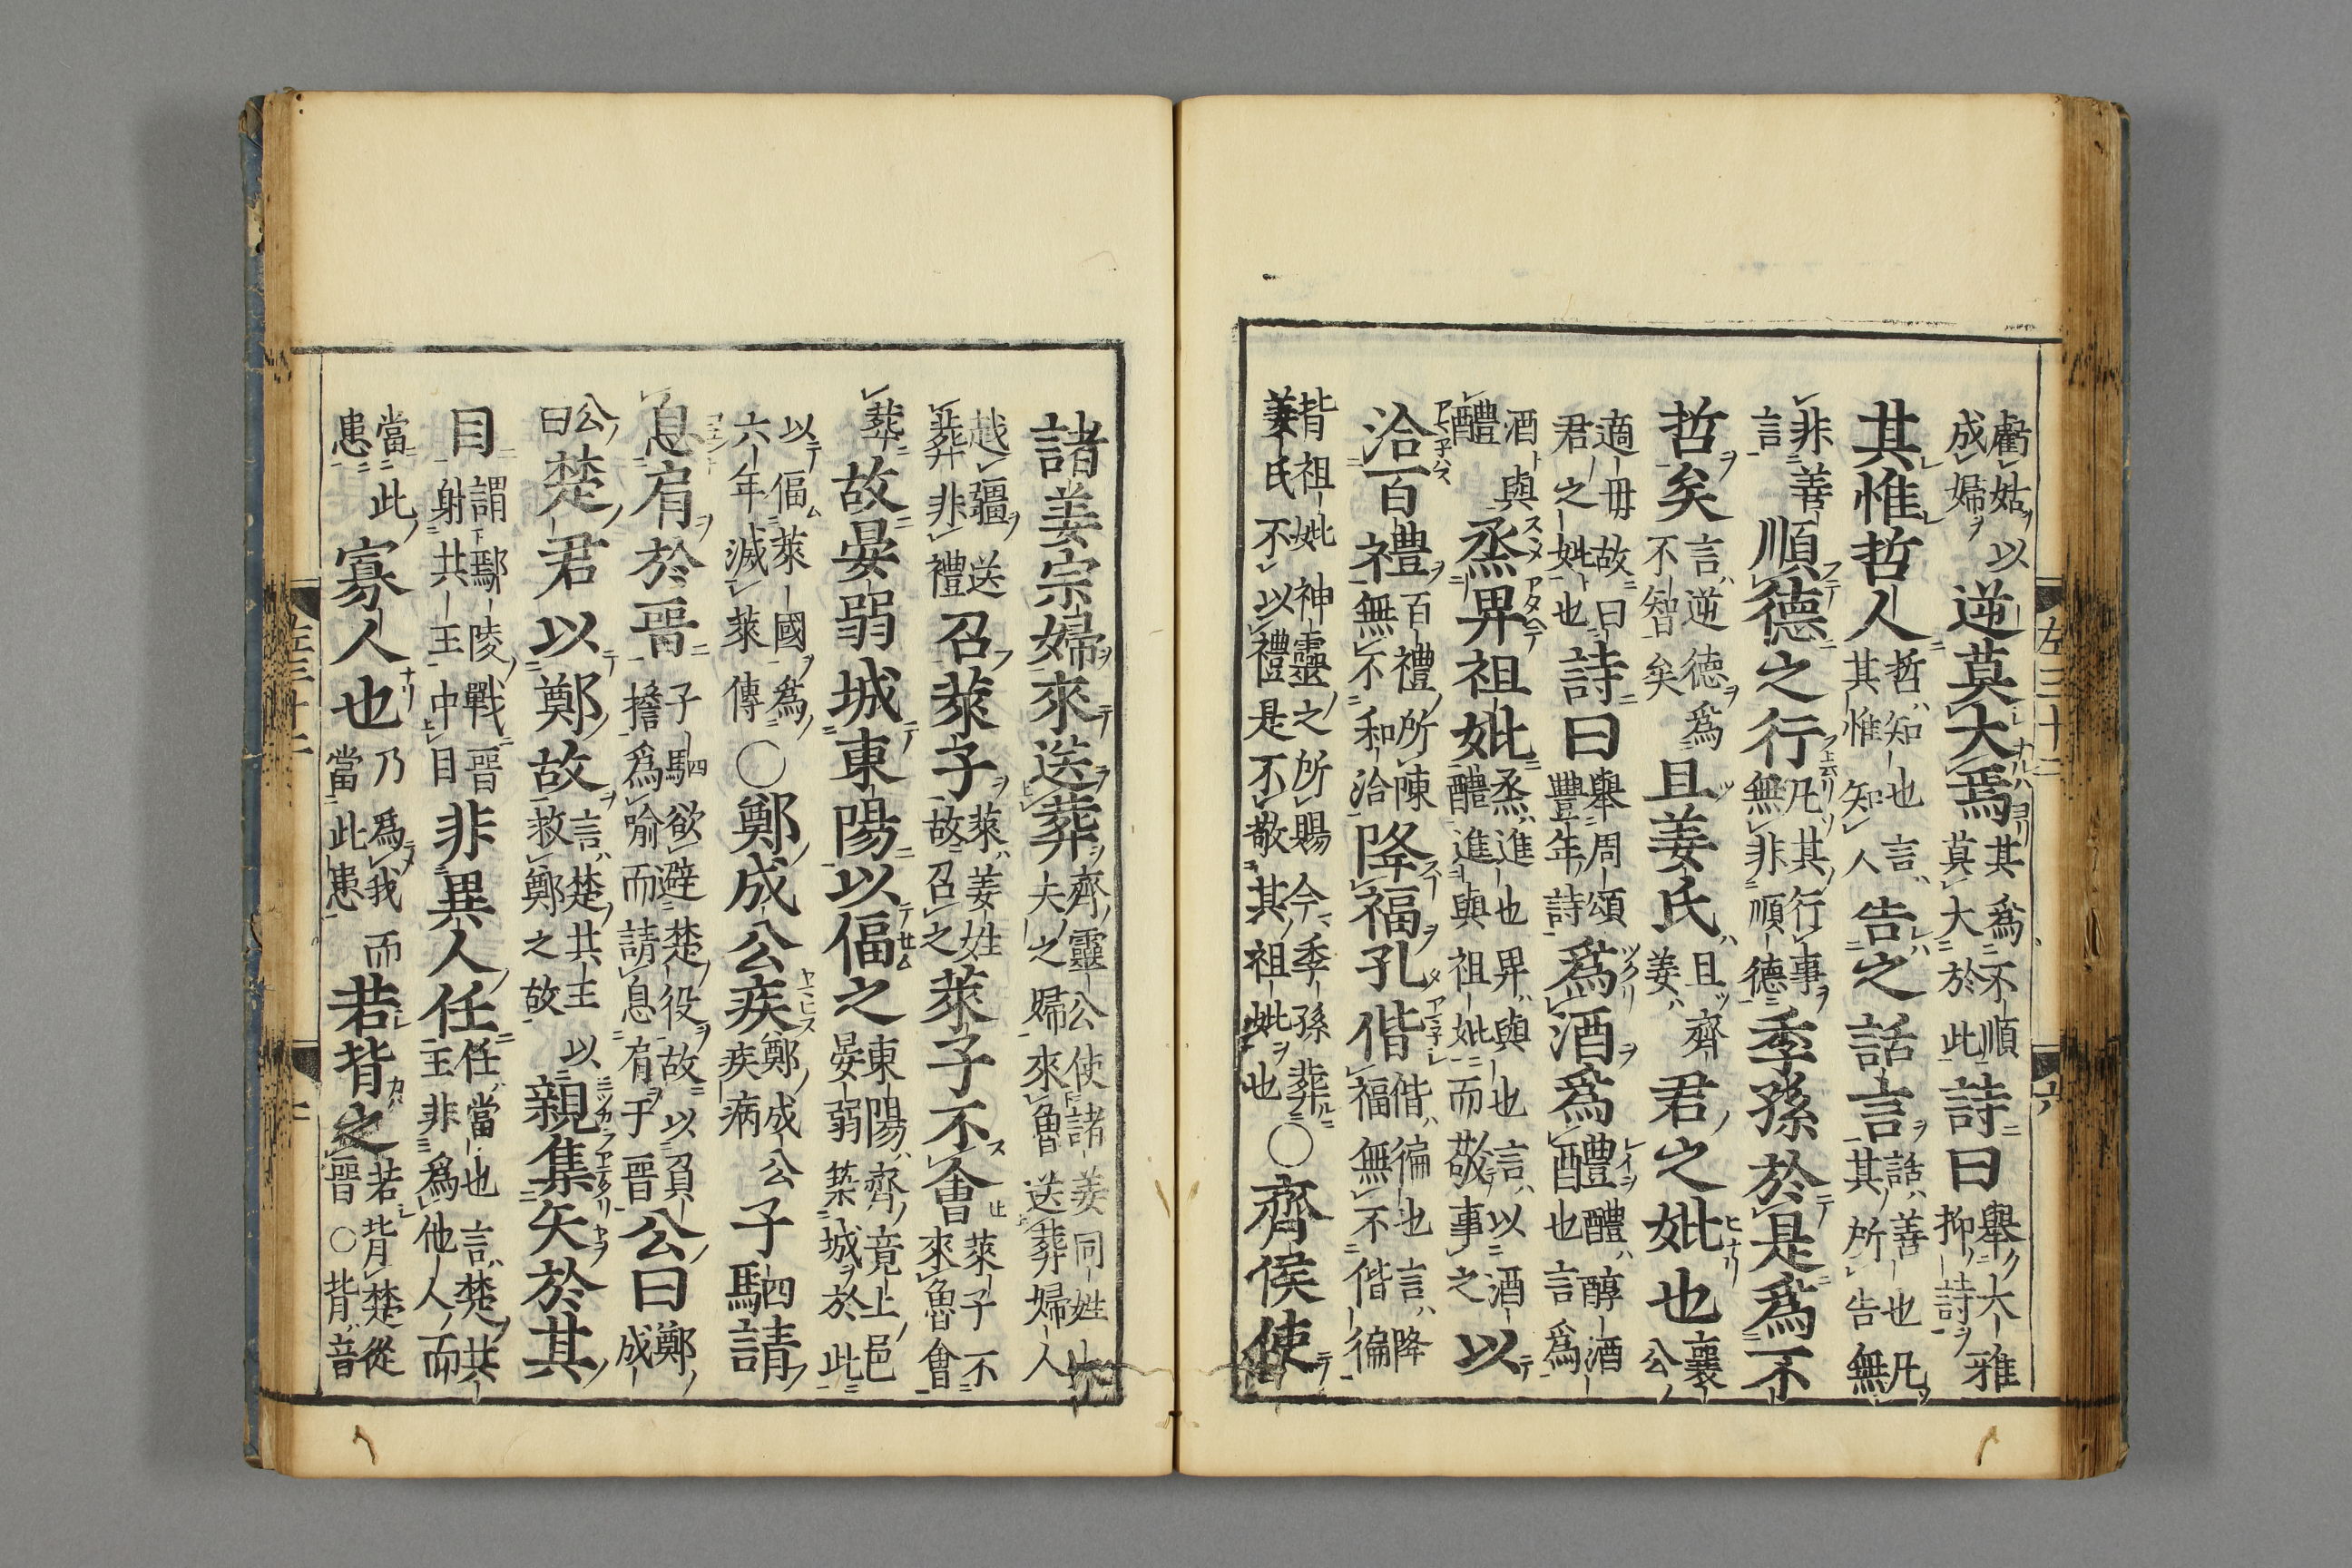 虧姑以成婦逆莫大焉其爲不順莫大於此詩曰舉大雅抑詩
其惟哲人哲知也言其惟知人告之話言話善也凡其所告無
非善言順德之行凡其行事無非順德季孫於是爲不
哲矣言逆德爲不智矣且姜氏且齊姜君之妣也襄公
適母故曰君之妣也詩曰舉周頌豐年詩爲酒爲醴醴醇酒也言爲
酒醴與烝畀祖妣烝進也畀與也醴進與祖妣言以酒而敬事之以
洽百禮百禮所陳無不和洽降福孔偕偕徧也言降福無不偕徧
皆祖妣神靈之所賜今季孫葬姜氏不以禮是不敬其祖妣也○齊侯使
諸姜宗婦來送葬齊靈公使諸姜同姓大夫之婦來魯送葬婦人
越疆送葬非禮召萊子萊姜姓故召之萊子不會萊子不來魯會
葬故晏弱城東陽以偪之東陽齊竟上邑晏弱築城於此
以偪萊國爲六年滅萊傳○鄭成公疾鄭成公疾病子駟請
息肩於晉子駟欲避楚役故以負擔爲喻而請息肩于晉公曰鄭成
公曰楚君以鄭故言楚共王救鄭之故以親集矢於其
目謂鄢陵戰晉射共王中目非異人任任當也言楚共王非爲他人而
當此患寡人也乃爲我而當此患若背之若背楚從晉○背音
左三十二
六